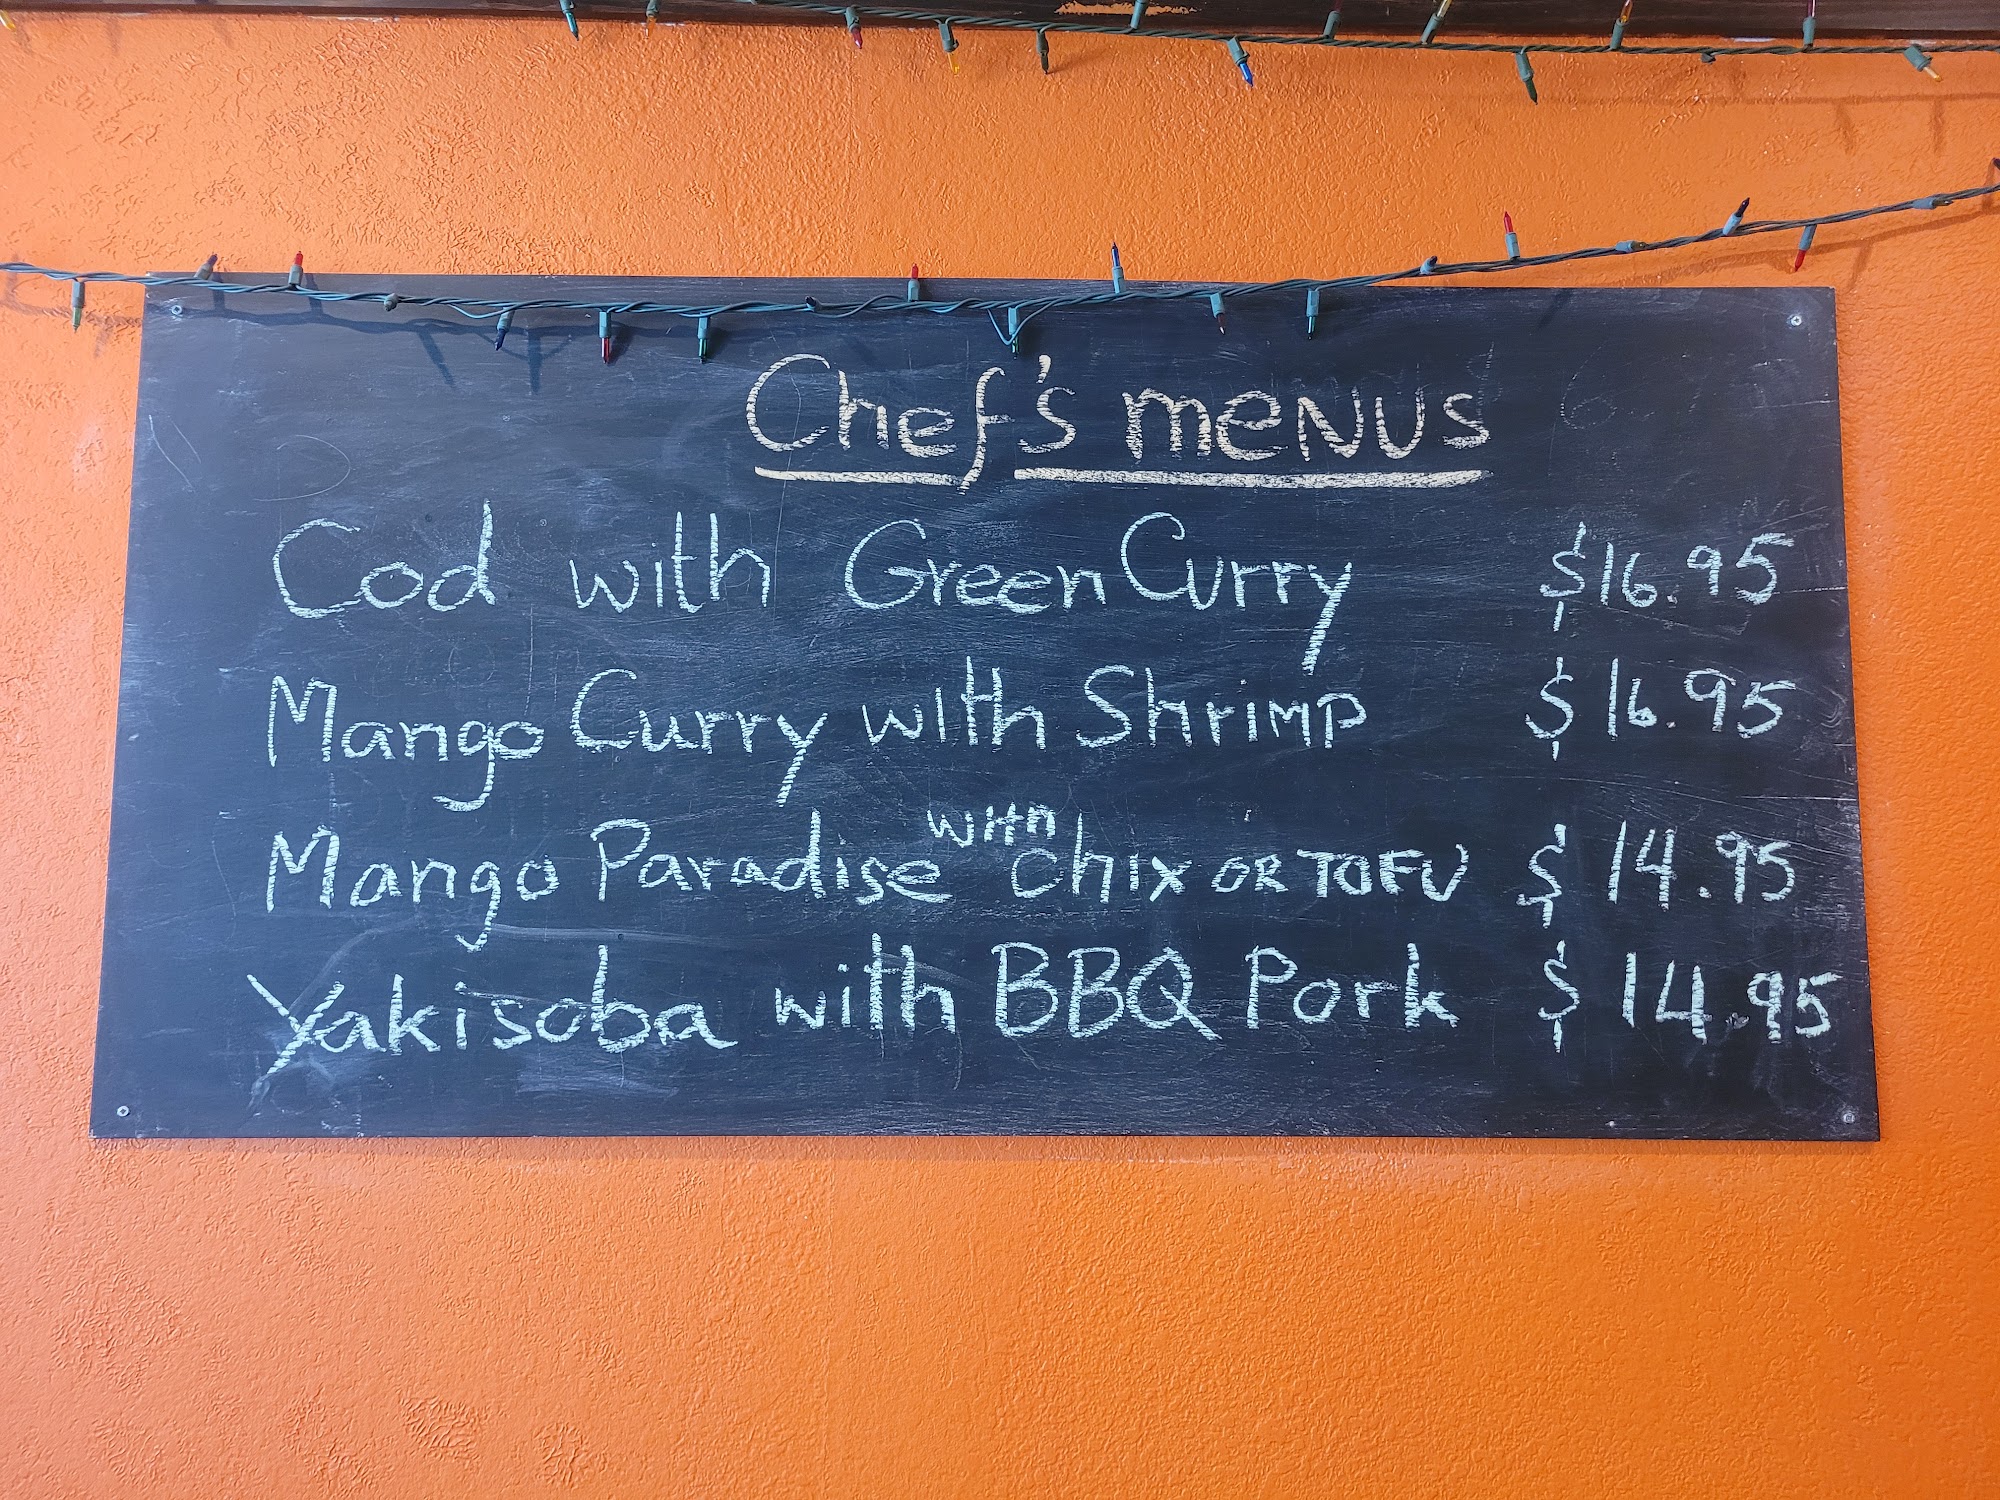 Chef's menus
Cod with Green Curry $16.95
Mango Curry with Shrimp $16.95
Mango Paradise with Chix OR TOFU $14.95
Yakisoba with BBQ Pork $14.95